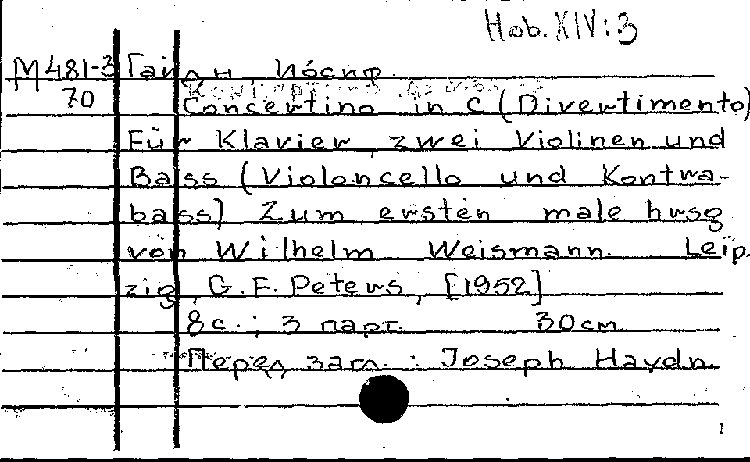 Hob. XIV:3
М481-3 Гайдн, Йосиф.
70 Concertino in C (Divertimento)
Für Klavier, zwei Violinen und
Bass (Violoncello und Kontra-
bass) Zum ersten male hrsg
von Wilhelm Weismann. Leip
zig, G.F. Peters, [1952]
8с.; 3 парт. 30см
Перед загл.: Joseph Haydn.
1